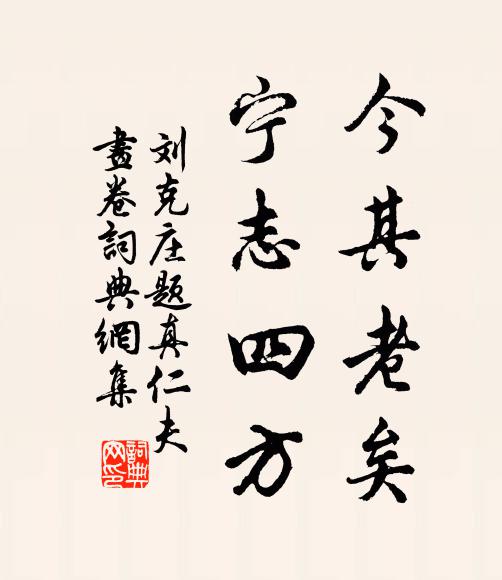 今其老矣
宁志四方
刘克庄题真仁夫
畫卷詞典網集
詞典
网印